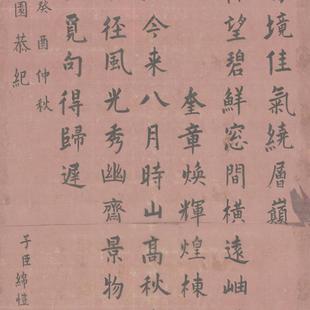 境佳氣繞層巔
望碧鮮窓間橫遠岫
奎章煥輝煌棟
今来八月時山高秋
径風光秀幽齋景物
覓句得歸遲
癸酉仲秋
園恭紀
子臣綿愷